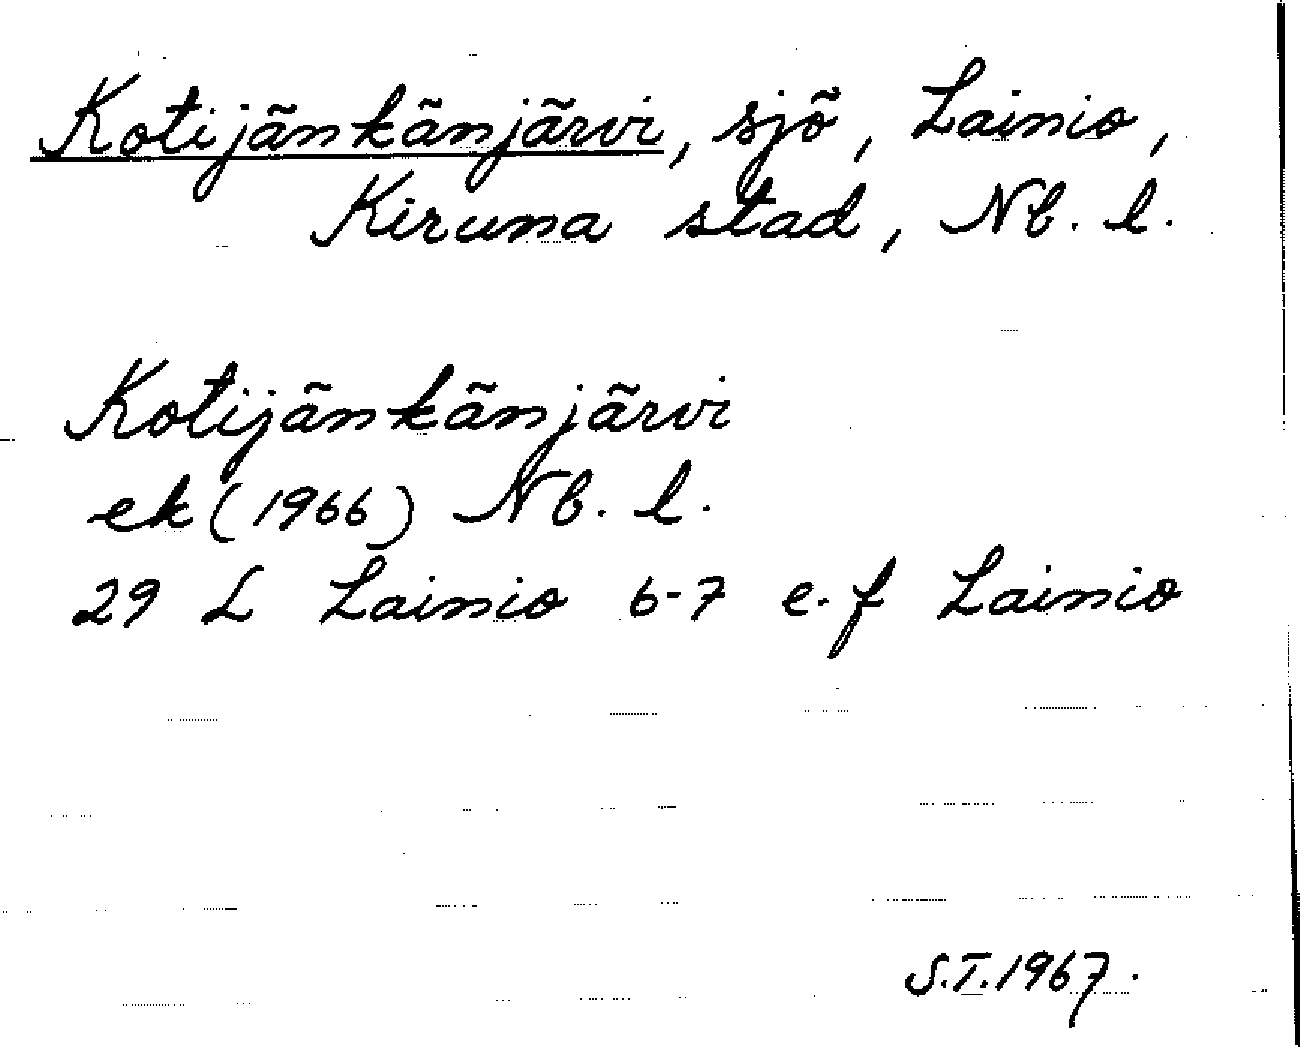 Kotijänkänjärvi, sjö, Lainio,
Kiruna stad, Nb. l.
Kotijänkänjärvi
ek (1966) Nb. l.
29 L Lainio 6-7 e-f Lainio
S.T. 1967.